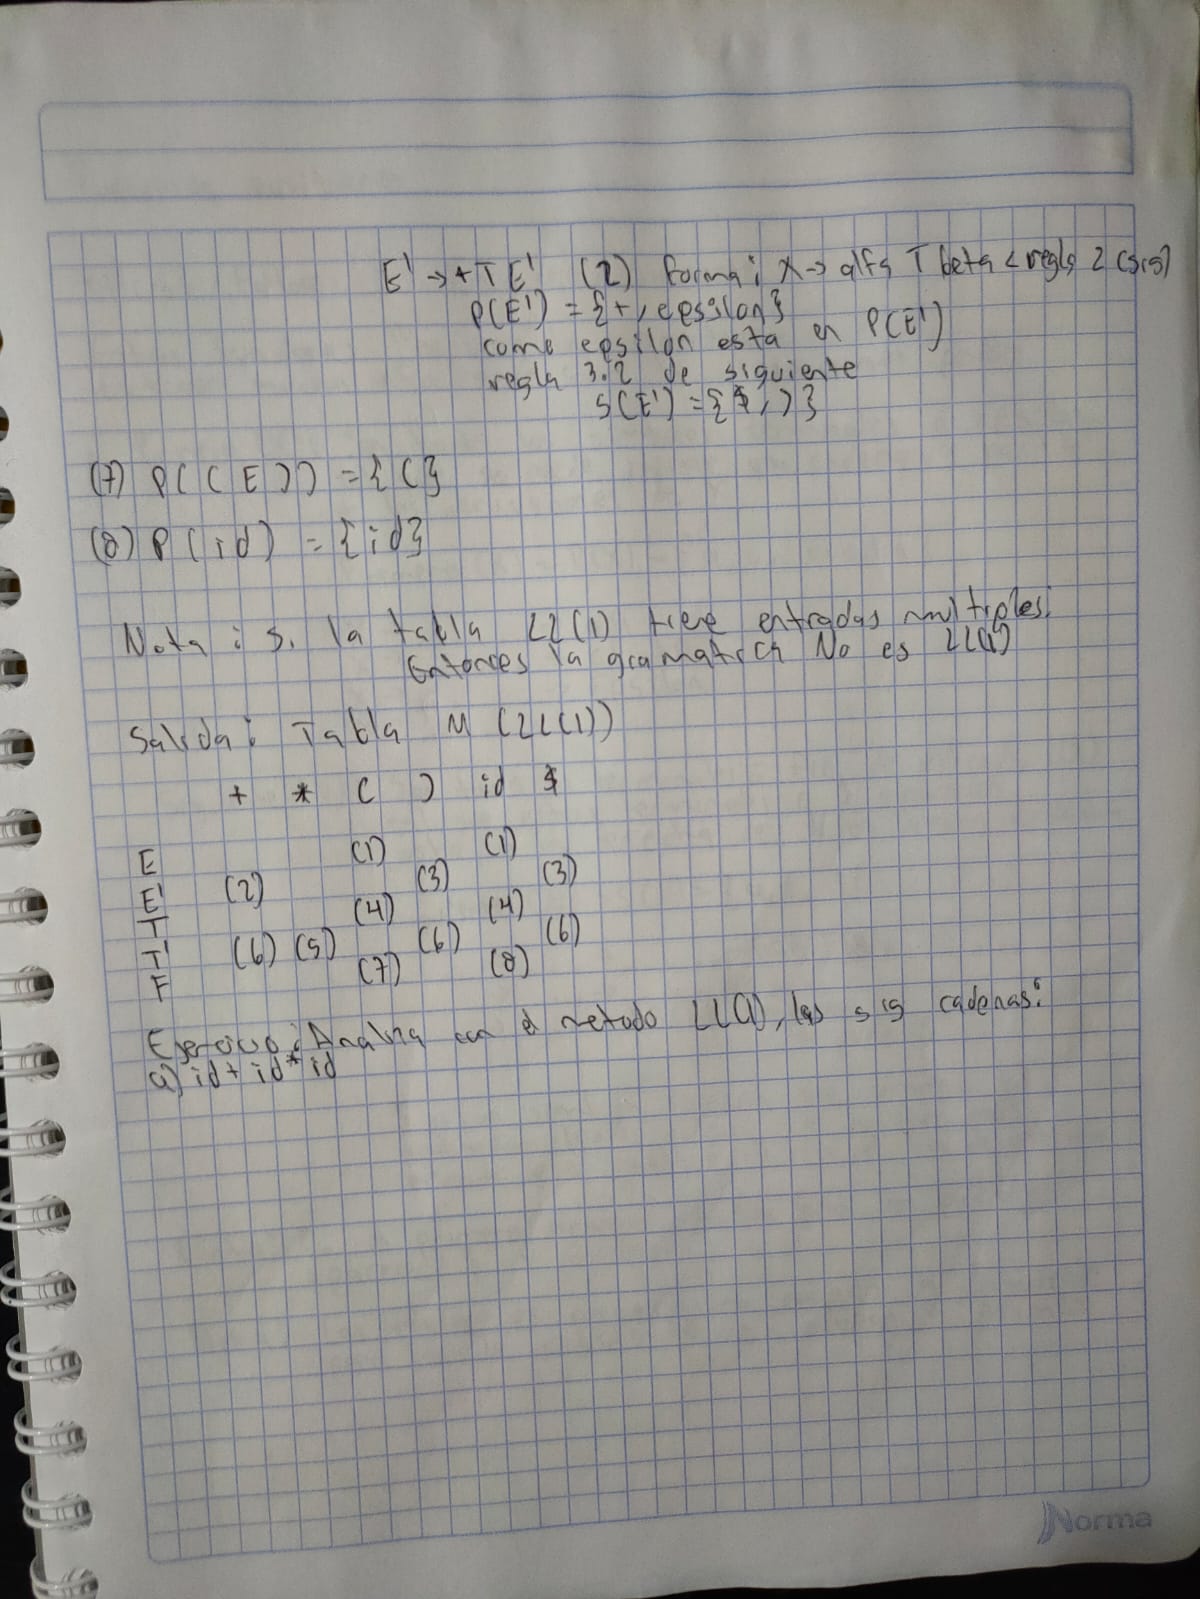 E' → + T E' (2) forma: X → alfa T beta < regla 2 (sig)
P(E') = {+, epsilon}
como epsilon esta en P(E')
regla 3.2 de siguiente
S(E') = {$, )}
(7) P( ( E ) ) = { ( }
(8) P( id ) = {id}
Nota: si la tabla LL(1) tiene entradas multiples,
Entonces la gramatica No es LL(1)
Salida: Tabla M (LL(1))
+ * ( ) id $
E (1) (1)
E' (2) (3) (3)
T (4) (4)
T' (6) (5) (6) (6)
F (7) (8)
Ejercicio: Analiza con el metodo LL(1), las sig cadenas:
a) id + id * id
Norma